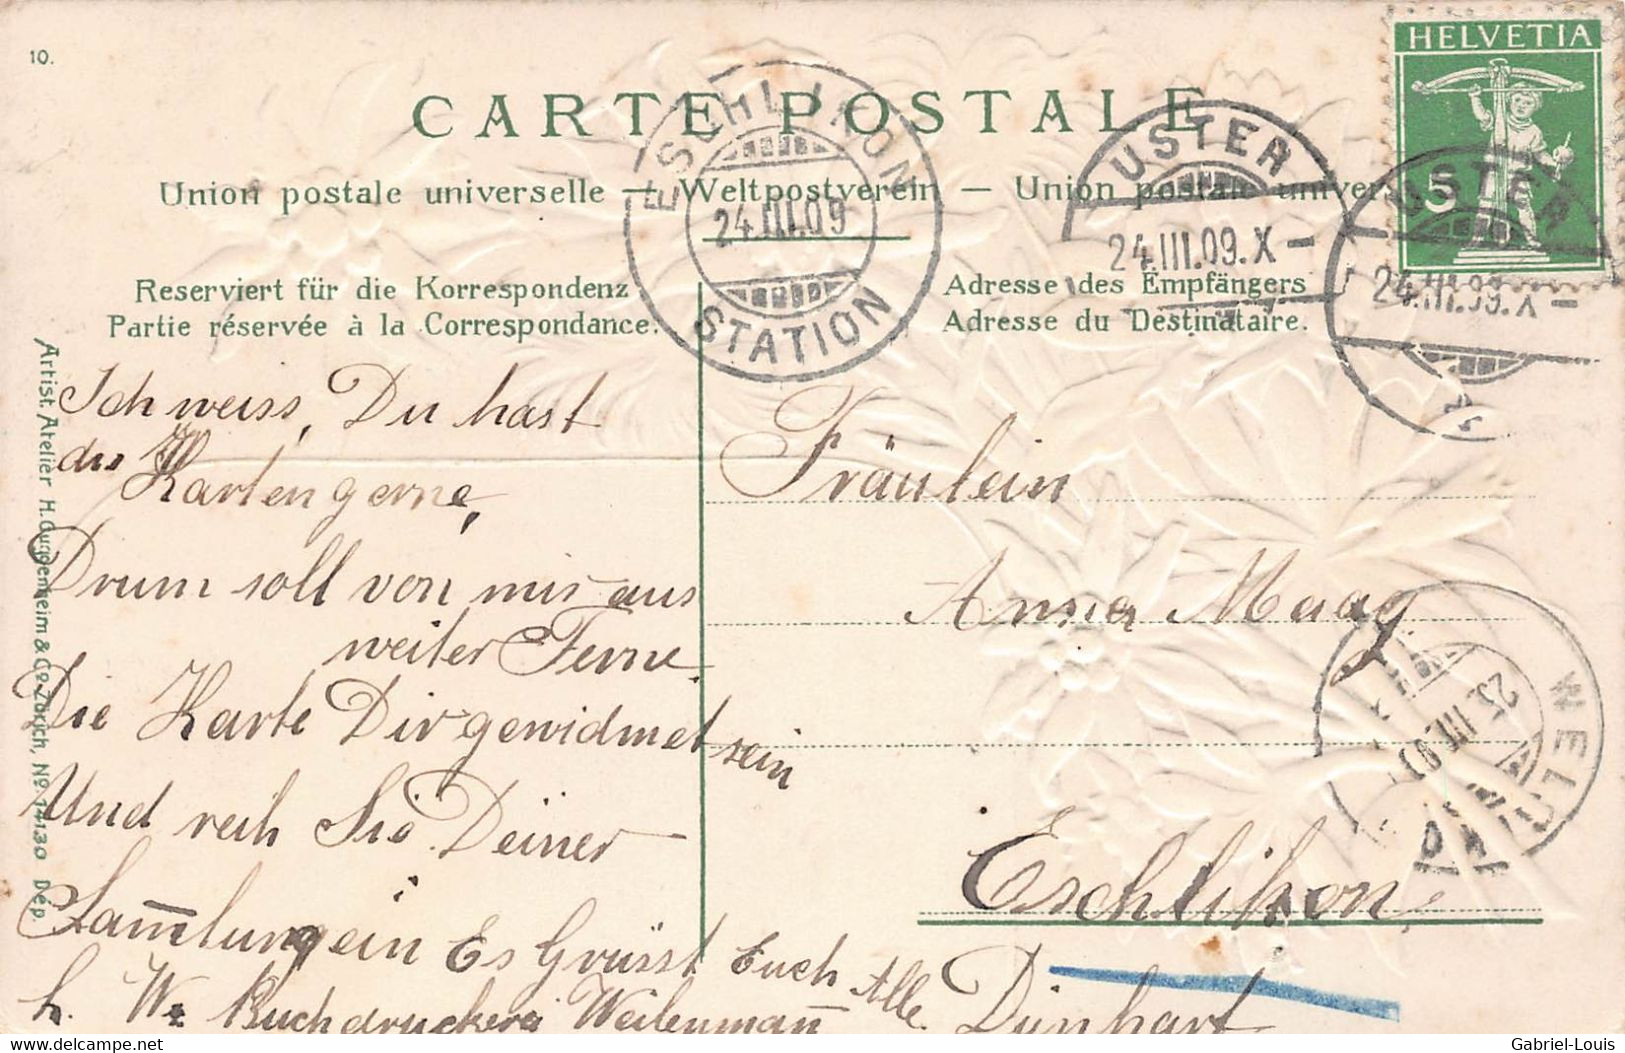 10.
CARTE POSTALE
Union postale universelle — Weltpostverein — Union postale univers
HELVETIA
5
ESCHLIKON
24.III.09
STATION
USTER
24.III.09.X–
USTER
24.III.09.X–
Reserviert für die Korrespondenz
Partie réservée à la Correspondance.
Adresse des Empfängers
Adresse du Destinataire.
Ich weiss, Du hast
die Karten gerne,
Drum soll von mir aus
weiter Ferne
Die Karte Dir gewidmet sein
Und reih Sie Deiner
Sam̅lung ein Es Grüsst Euch Alle
h. W. Buchdruckerei Weilenman̅
Fräulein
Anna Maag
Eschlikon
Dinhart
25.III.0
Artist. Atelier H. Guggenheim & Co. Zürich, No. 14130 Dép.
delcampe.net
Gabriel-Louis